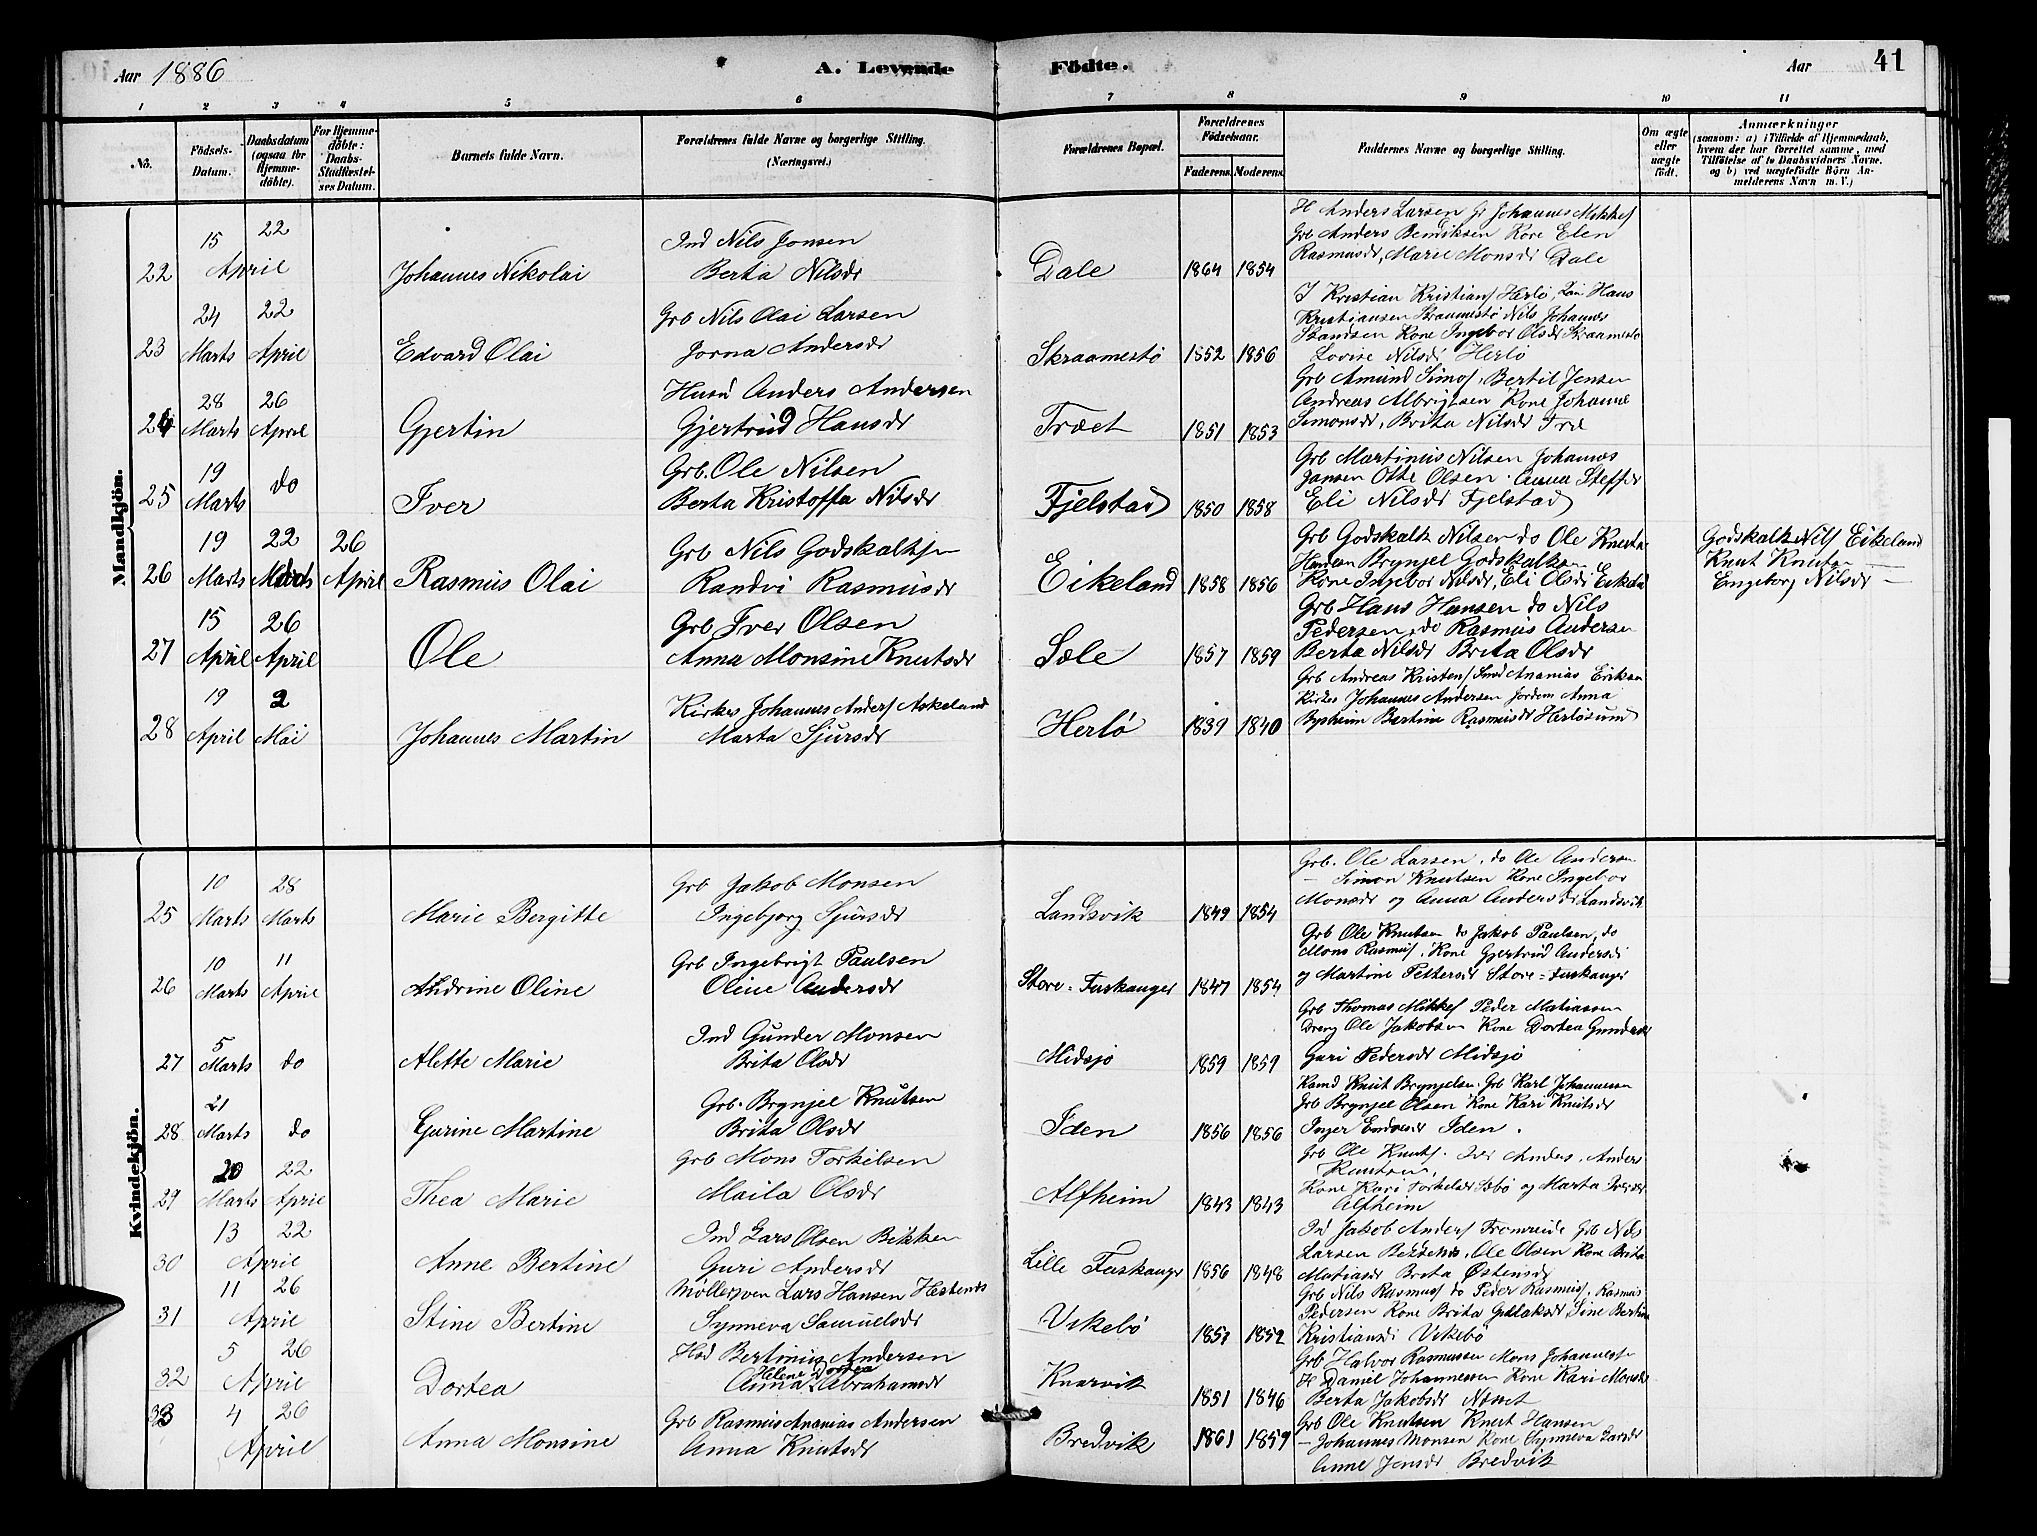 Aar 1886
A. Levende
Födte.
Aar
41
1 2 3 4 5 6 7 8 9 10 11
No.
Födsels-Datum.
Daabsdatum (ogsaa for Hjemmedöbte).
For Hjemmedöbte: Daabs-Stadfæstelses Datum.
Barnets fulde Navn.
Forældrenes fulde Navne og borgerlige Stilling. (Næringsvei.)
Forældrenes Bopæl.
Forældrenes Födselsaar.
Faderens. Moderens.
Faddernes Navne og borgerlige Stilling.
Om ægte eller uægte födt.
Anmærkninger
(saasom: a) i Tilfælde af Hjemmedaab, hvem der har forrettet samme, med Tilföielse af to Daabsvidners Navne. og b) ved uægtefödte Börn Anmelderens Navn m. V.)
Mandkjön.
22 15 April 22 Johannes Nikolai
Ind Nils Jonsen
Berta Nilsdr
Dale 1864 1854
H Anders Larsen Gr Johannes Mikkels
Grb Anders Bendiksen Kone Elen
Rasmusdr, Marie Monsdr Dale
23 24 Marts 22 April Edvard Olai
Grb Nils Olai Larsen
Jorna Andersdr
Skraamestö 1852 1856
J Kristian Kristians Herlö, Hans
Kristiansen Skraamestö Nils Johannes
Kone Ingebor Olsdr Skraamestö
Lovise Nilsdr Herlö
24 28 Marts 26 April Gjertin
Husm Anders Andersen
Gjertrud Hansdr
Træet 1851 1853
Grb Amund Simos, Bertil Jensen
Andreas Albrigtsen Kone Johanne
Simonsdr, Brita Nilsdr Træ
25 19 Marts do Iver
Grb. Ole Nilsen
Berta Kristoffa Nilsdr
Fjelstad 1850 1858
Grb Martinus Nilsen Johannes
Jansen Otte Olsen. Anna Steffdr
Eli Nilsdr Fjelstad
26 19 Marts 22 Marts 26 April Rasmus Olai
Grb Nils Godskalksen
Randvi Rasmusdr
Eikeland 1858 1856
Grb Godskalk Nilsen do Ole Knuts
Brynjel Godskalksen
Kone Ingebor Nilsdr, Eli Olsdr Eikeland
Godskalk Nils Eikeland
Knut Knutsen —
Engeborg Nilsdr —
27 15 April 26 April Ole
Grb Iver Olsen
Anna Monsine Knutsdr
Sæle 1857 1859
Grb Hans Hansen do Nils
Pedersen, do Rasmus Andersen
Berta Nilsdr Brita Olsdr
28 19 April 2 Mai Johannes Martin
Kirkes Johannes Anders Askeland
Marta Sjursdr
Herlö 1839 1840
Grb Andreas Kristens Ananias Eriksen
Kirkes Johannes Andersen Jordem Anna
Bertine Rasmusdr Herlösund
Kvindekjön.
25 10 Marts 28 Marts Marie Bergitte
Grb Jakob Monsen
Ingebjorg Sjursdr
Landsvik 1849 1854
Grb. Ole Larsen, do Ole Andersen
— Simon Knutsen Kone Ingebor
Monsdr og Anna Andersdr Landsvik
26 10 Marts 11 April Andrine Oline
Grb Ingebrigt Paulsen
Oline Andersdr
Store-Fuskanger 1847 1854
Grb Ole Knutsen do Jakob Paulsen, do
Mons Rasmus. Kone Gjertrud Andersdr
og Martine Pettersdr Store-Fuskanger
27 5 Marts do Alette Marie
Ind Gunder Monsen
Brita Olsdr
Midsjö 1859 1859
Grb Thomas Mikkels Peder Matiassen
Dreng Ole Jakobsen Kone Dortea Gundersdr
Guri Pedersdr Midsjö
28 21 Marts do Gurine Martine
Grb. Brynjel Knutsen
Brita Olsdr
Iden 1856 1856
Knut Brynjelsen. Grb Karl Johannesen
Grb Brynjel Olsen Kone Kari Knutsdr
Inger Iden.
29 20 Marts 22 April Thea Marie
Grb Mons Torkelsen
Maila Olsdr
Alfheim 1843 1843
Grb Ole Knuts. Iver Anders. Anders
Knutsen,
Kone Kari Torkelsdr Sæbö og Marta Iversdr
Alfheim
30 13 April 22 Anne Bertine
Ind Lars Olsen Bekken
Guri Andersdr
Lille Fuskanger 1856 1848
Ind Jakob Anders Fromreide Grb Nils
Larsen, Ole Olsen Kone Brita
Matiasdr Brita Östensdr
31 11 April 26 Stine Bertine
Möllersven Lars Hansen Hestenes
Synneva Samuelsdr
Vikebö 1857 1852
Grb Nils Rasmus do Peder Rasmus, Rasmus
Pedersen Kone Brita Gutlaksdr, Sine Bertine
Kristiansdr Vikebö
32 5 April 26 Dortea
Hsd Bertinius Andersen
Helene Dortea
Anna Abrahamsdr
Knarvik 1851 1846
Grb Halvor Rasmussen Mons Johannes
H Daniel Johannessen Kone Kari Monsdr
Berta Jakobsdr Nesset
33 4 April 26 Anna Monsine
Grb Rasmus Ananias Andersen
Anna Knutsdr
Bredvik 1861 1859
Grb Ole Knutsen Knut Hansen
— Johannes Monsen Kone Synneva Larsdr
Anne Jensdr Bredvik